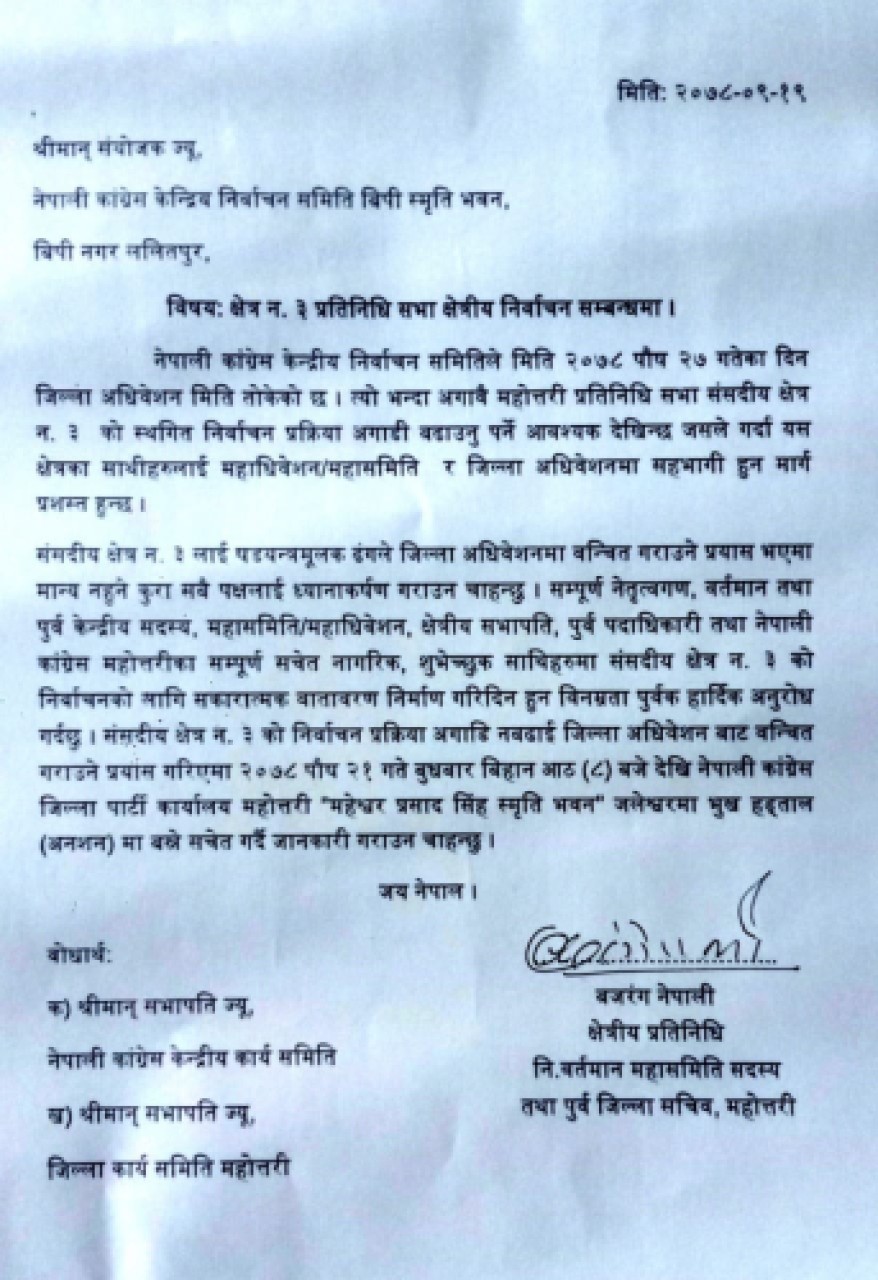 मिति: २०७८-०९-१९
श्रीमान् संयोजक ज्यू,
नेपाली कांग्रेस केन्द्रिय निर्वाचन समिति बिपी स्मृति भवन,
बिपी नगर ललितपुर,
विषय: क्षेत्र न. ३ प्रतिनिधि सभा क्षेत्रीय निर्वाचन सम्बन्धमा ।
नेपाली कांग्रेस केन्द्रीय निर्वाचन समितिले मिति २०७८ पौष २७ गतेका दिन
जिल्ला अधिवेशन मिति तोकेको छ । त्यो भन्दा अगावै महोत्तरी प्रतिनिधि सभा संसदीय क्षेत्र
न. ३ को स्थगित निर्वाचन प्रक्रिया अगाडी बढाउनु पर्ने आवश्यक देखिन्छ जसले गर्दा यस
क्षेत्रका साथीहरुलाई महाधिवेशन/महासमिति र जिल्ला अधिवेशनमा सहभागी हुन मार्ग
प्रशस्त हुन्छ ।
संसदीय क्षेत्र न. ३ लाई षडयन्त्रमूलक ढंगले जिल्ला अधिवेशनमा वन्चित गराउने प्रयास भएमा
मान्य नहुने कुरा सबै पक्षलाई ध्यानाकर्षण गराउन चाहन्छु । सम्पूर्ण नेतृत्वगण, वर्तमान तथा
पुर्व केन्द्रीय सदस्य, महासमिति/महाधिवेशन, क्षेत्रीय सभापति, पुर्व पदाधिकारी तथा नेपाली
कांग्रेस महोत्तरीका सम्पूर्ण सचेत नागरिक, शुभेच्छुक साथिहरुमा संसदीय क्षेत्र न. ३ को
निर्वाचनको लागि सकारात्मक वातावरण निर्माण गरिदिन हुन विनम्रता पुर्वक हार्दिक अनुरोध
गर्दछु । संसदीय क्षेत्र न. ३ को निर्वाचन प्रक्रिया अगाडि नबढाई जिल्ला अधिवेशन बाट वन्चित
गराउने प्रयास गरिएमा २०७८ पौष २१ गते बुधबार बिहान आठ (८) बजे देखि नेपाली कांग्रेस
जिल्ला पार्टी कार्यालय महोत्तरी "महेश्वर प्रसाद सिंह स्मृति भवन" जलेश्वरमा भुख हड्ताल
(अनशन) मा बस्ने सचेत गर्दै जानकारी गराउन चाहन्छु ।
जय नेपाल ।
बोधार्थ:
क) श्रीमान् सभापति ज्यू,
नेपाली कांग्रेस केन्द्रीय कार्य समिति
ख) श्रीमान् सभापति ज्यू,
जिल्ला कार्य समिति महोत्तरी
बजरंग नेपाली
क्षेत्रीय प्रतिनिधि
नि.वर्तमान महासमिति सदस्य
तथा पुर्व जिल्ला सचिव, महोत्तरी